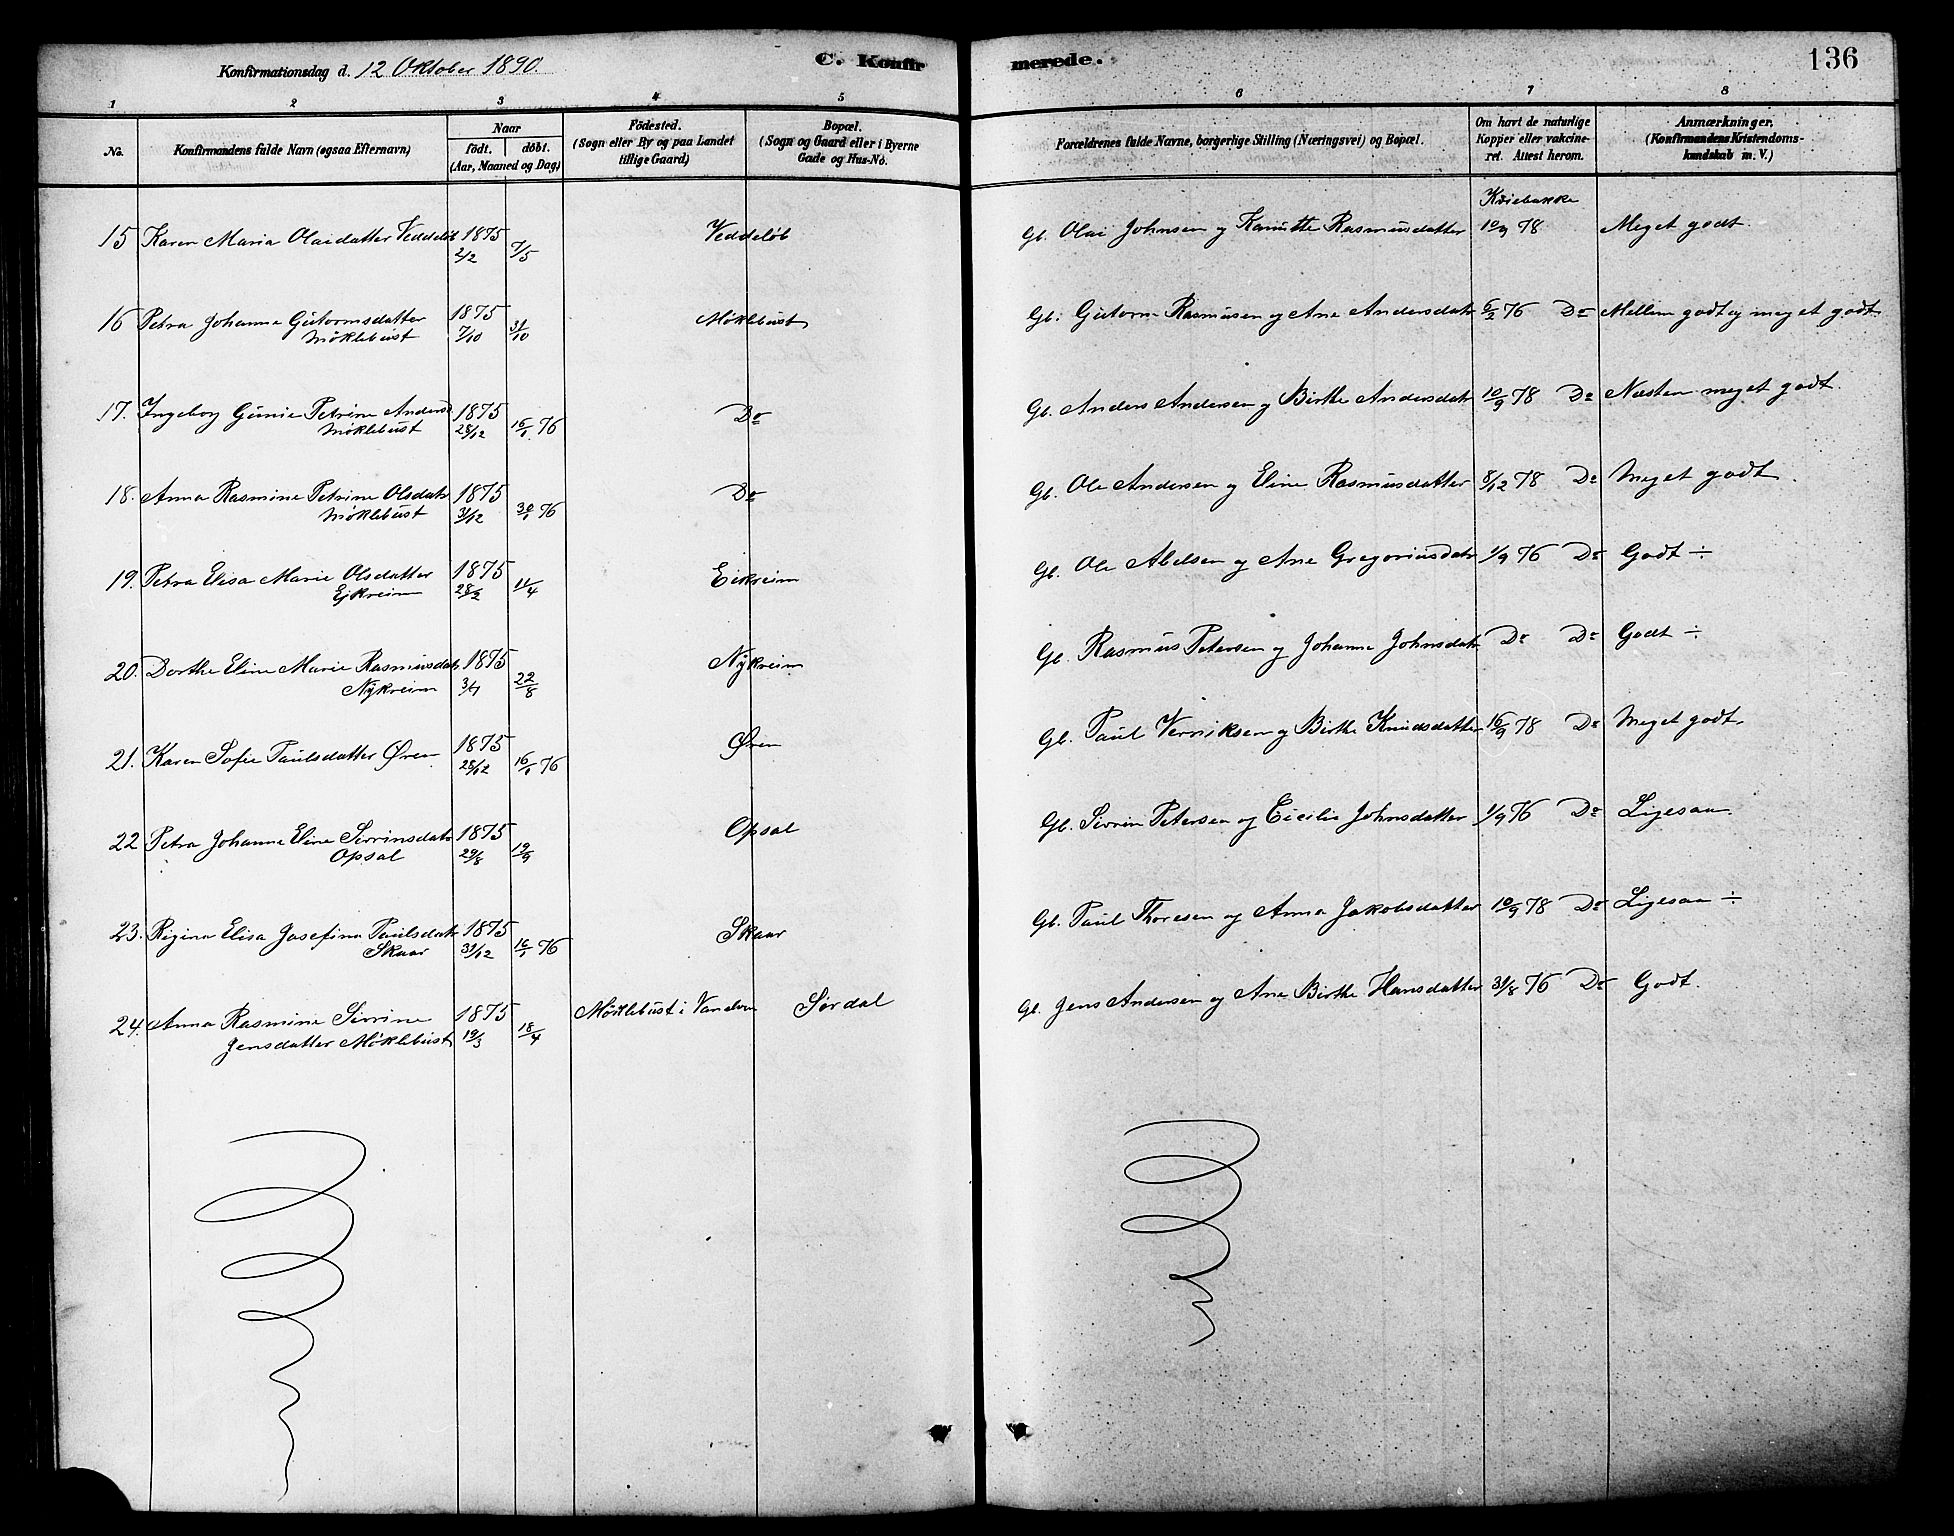 Konfirmationsdag d. 12 Oktober 1890.
C. Konfirmerede.
136
1 2 3 4 5 6 7 8
No.
Konfirmandens fulde Navn (ogsaa Efternavn)
Naar
født. døbt.
(Aar, Maaned og Dag)
Födested.
(Sogn eller By og paa Landet
tillige Gaard)
Bopæl.
(Sogn og Gaard eller i Byerne
Gade og Hus-No.
Forældrenes fulde Navne, borgerlige Stilling (Næringsvei) og Bopæl.
Om havt de naturlige
Kopper eller vakcine-
ret. Attest herom.
Anmærkninger.
(Konfirmandens Kristendoms-
kundskab m. V.)
15 Karen Maria Olaidatter Veddeløb 1875 2/2 7/5 Veddeløb Gb. Olai Johnsen og Kanutte Rasmusdatter 10/9 78 Meget godt.
16 Petra Johanne Gutormsdatter 1875 7/10 31/10 Møklebust Gb. Gutorm Rasmusen og Ane Andersdatr 6/2 76 Do Mellem godt og meget godt
Møklebust
17. Ingeborg Gunie Petrine Anders. 1875 28/12 16/1 76 Do Gb. Anders Andersen og Birthe Andersdatr 10/9 78 Do Næsten meget godt.
Møklebust
18. Anna Rasmine Petrine Olsdatr 1875 31/12 30/1 76 Do Gb. Ole Andersen og Eline Rasmusdatter 8/12 78 Do Meget godt.
Møklebust
19. Petra Elisa Marie Olsdatter 1875 28/2 11/4 Eikreim Gb. Ole Abelsen og Ane Gregoriusdatr 1/9 76 Do Godt ÷
Ejkreim
20. Dorthe Eline Marie Rasmusdatr 1875 3/7 22/8 Nykreim Gb. Rasmus Petersen og Johanne Johnsdatr Do Do Godt ÷
Nykreim
21. Karen Sofie Paulsdatter Øren 1875 28/12 16/1 76 Øren Gb. Paul Verriksen og Birthe Knudsdatter 16/9 78 Do Meget godt.
22 Petra Johanne Eline Sivrinsdatr 1875 29/8 19/9 Opsal Gb. Sivrin Petersen og Cicilie Johnsdatter 1/9 76 Do Ligesaa.
Opsal
23. Rigina Elisa Josefina Paulsdatr 1875 31/12 16/1 76 Skaar Gb. Paul Thoresen og Anna Jakobsdatter 10/9 78 Do Ligesaa ÷
Skaar
24. Anna Rasmine Sivrine 1875 19/3 18/4 Møklebust i Vanelven Sørdal Gb. Jens Andersen og Ane Birthe Hansdatter 31/8 76 Do Godt.
Jensdatter Møklebust